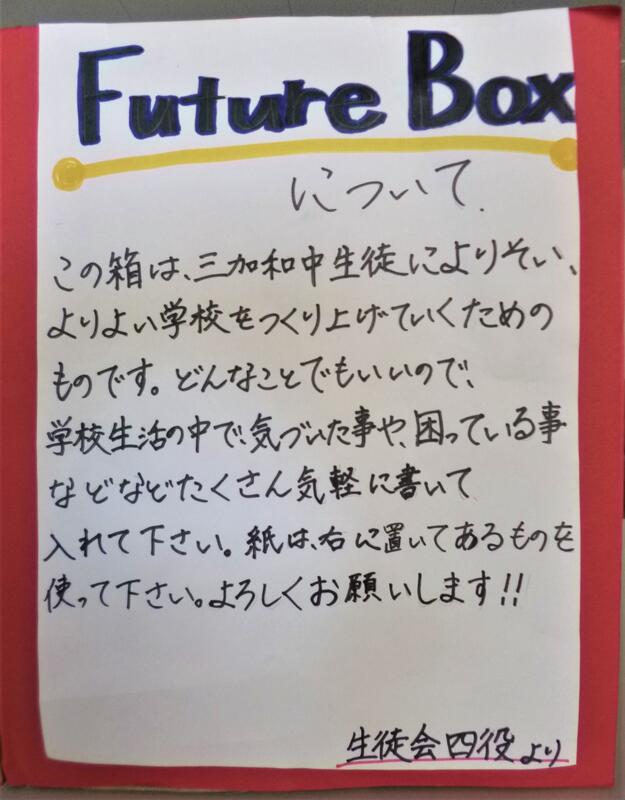 Future Box
について.
この箱は、三加和中生徒によりそい、
よりよい学校をつくり上げていくための
ものです。どんなことでもいいので、
学校生活の中で、気づいた事や、困っている事
などなどたくさん気軽に書いて
入れて下さい。紙は、右に置いてあるものを
使って下さい。よろしくお願いします!!
生徒会四役より